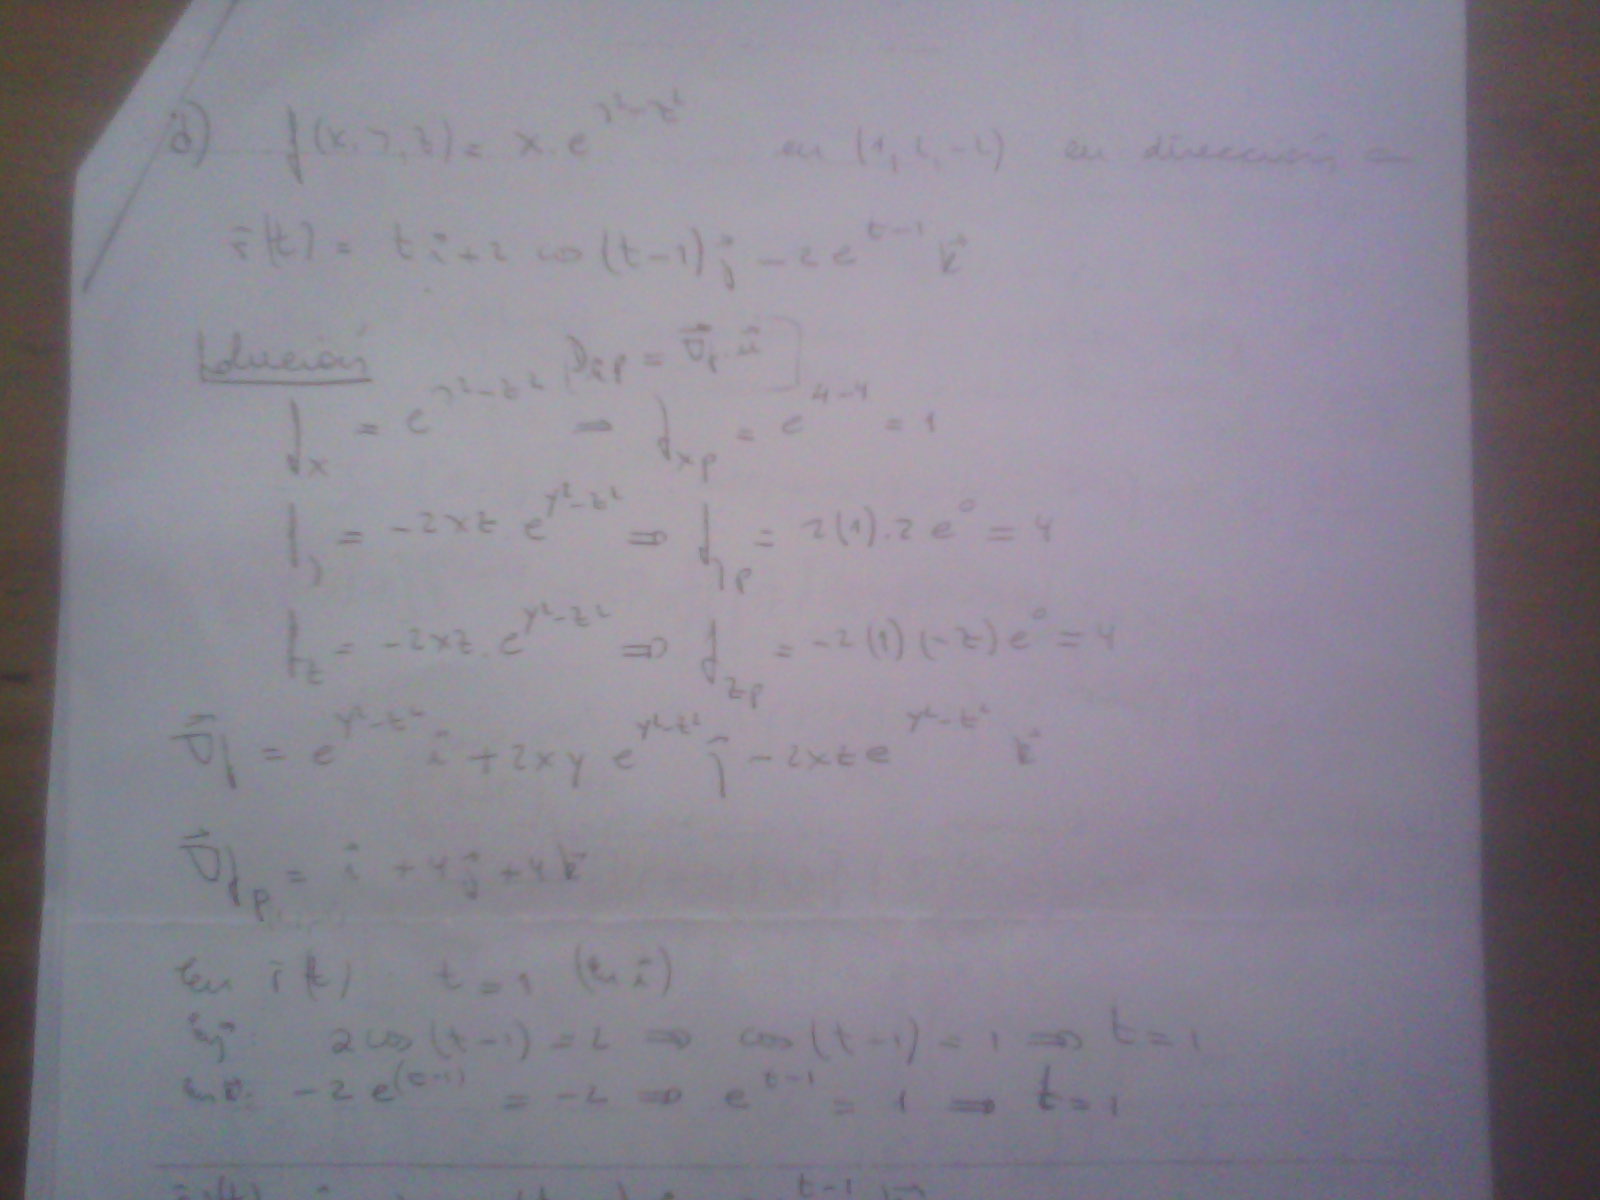 d) f(x,y,z) = x e^{y²-z²} en (1,2,-2) en dirección a
r̄(t) = t i + 2 cos(t-1) j - 2e^{t-1} k
Solución D_{ūp} = ∇_p · ū]
f_x = e^{y²-z²} ⇒ f_{xp} = e^{4-4} = 1
f_y = -2xz e^{y²-z²} ⇒ f_{yp} = 2(1).2 e^0 = 4
f_z = -2xz . e^{y²-z²} ⇒ f_{zp} = -2(1)(-2) e^0 = 4
∇f = e^{y²-z²} i + 2xy e^{y²-z²} j - 2xz e^{y²-z²} k
∇f_p = i + 4j + 4k
En r̄(t) t = 1 (en i)
en j 2cos(t-1) = 2 ⇒ cos(t-1) = 1 ⇒ t = 1
en k: -2 e^{(t-1)} = -2 ⇒ e^{t-1} = 1 ⇒ t = 1